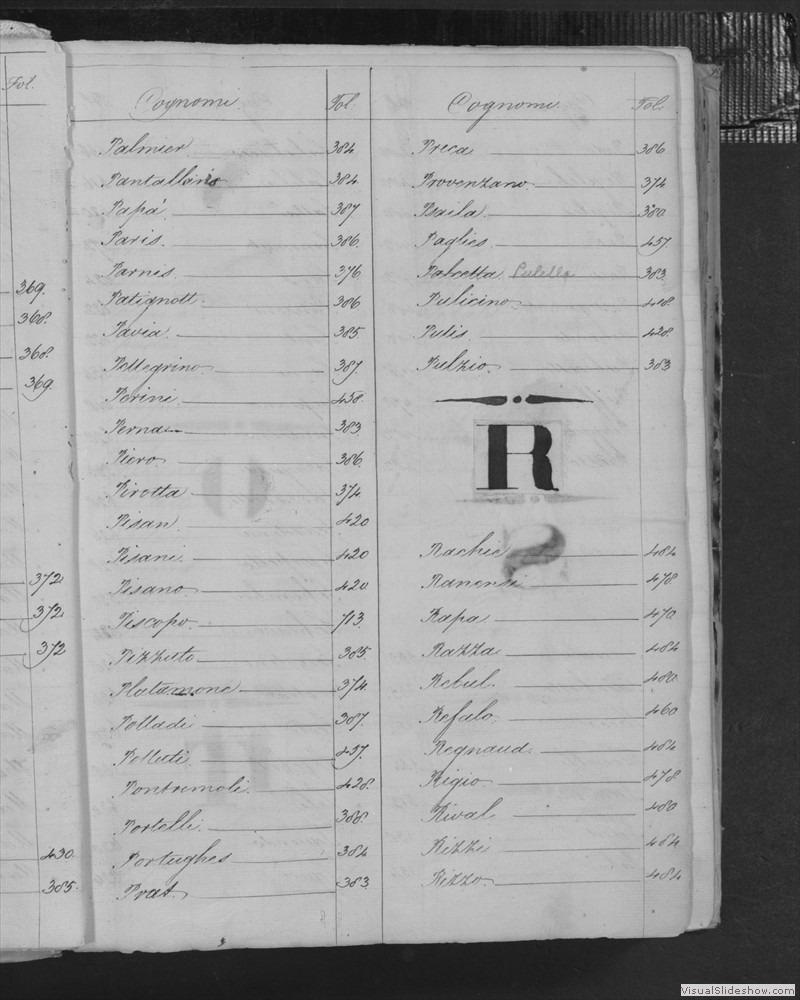 Fol.
369.
368.
368.
369.
372
372
372
430.
385.
Cognomi. Fol.
Palmier 384
Pantallino 384.
Papa' 387
Paris. 386.
Parnis. 376
Patignott 386
Pavia. 385.
Pellegrino 387.
Perini. 438.
Perna 383.
Piero 386.
Pirotta 374
Pisan 420
Pisani 420
Pisano 420
Piscopo 713.
Pizzuto 385.
Platamone 374.
Polladi 387.
Polluti 457.
Pontremoli 428.
Portelli 388.
Portughes 384
Prat. 383.
Cognomi. Fol.
Preca 386
Provenzano 374
Psaila 380
Puglies 457.
Pulcetta Pulella 383
Pulicino 418.
Pulis 428.
Pulzio 383
R
Rachic 484
478
Rapa 470
Razza 484
Rebul 480.
Refalo 460
Regnaud 484
Rigio 478
Rival 480
Rizzi 484
Rizzo 484
VisualSlideshow.com